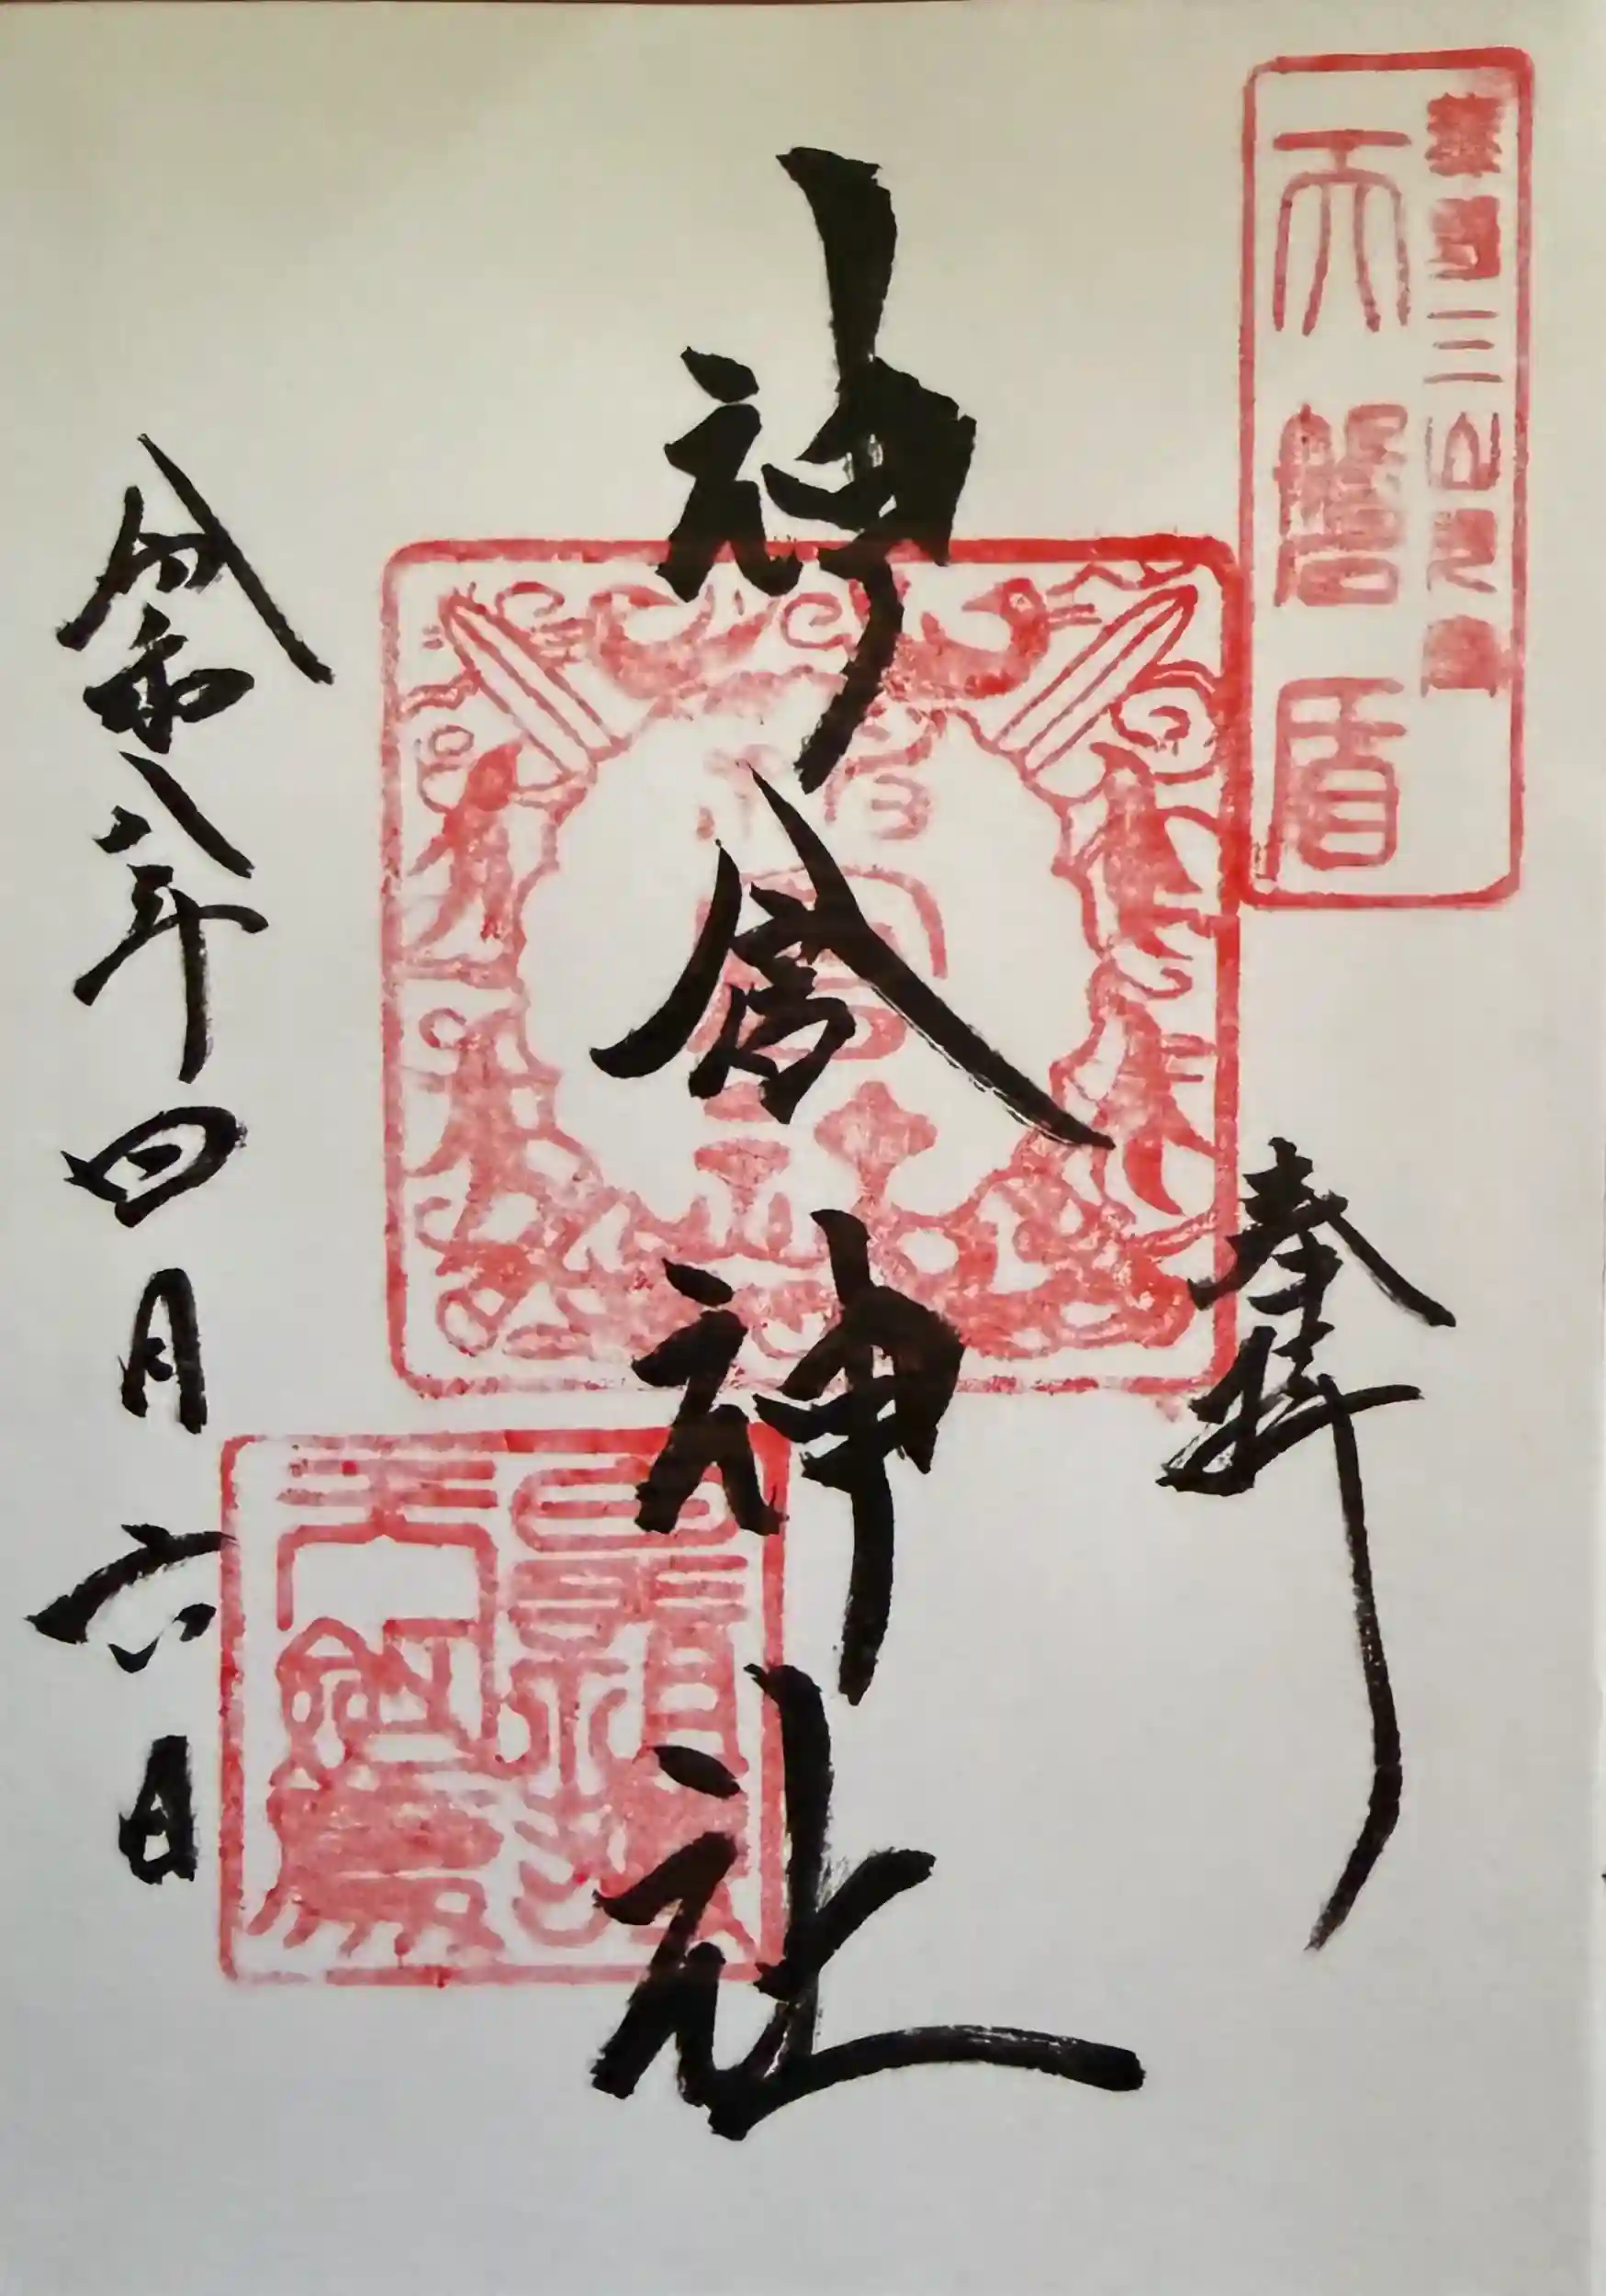 熊野三山元宮
天磐盾
奉拝
神倉神社
令和八年四月六日